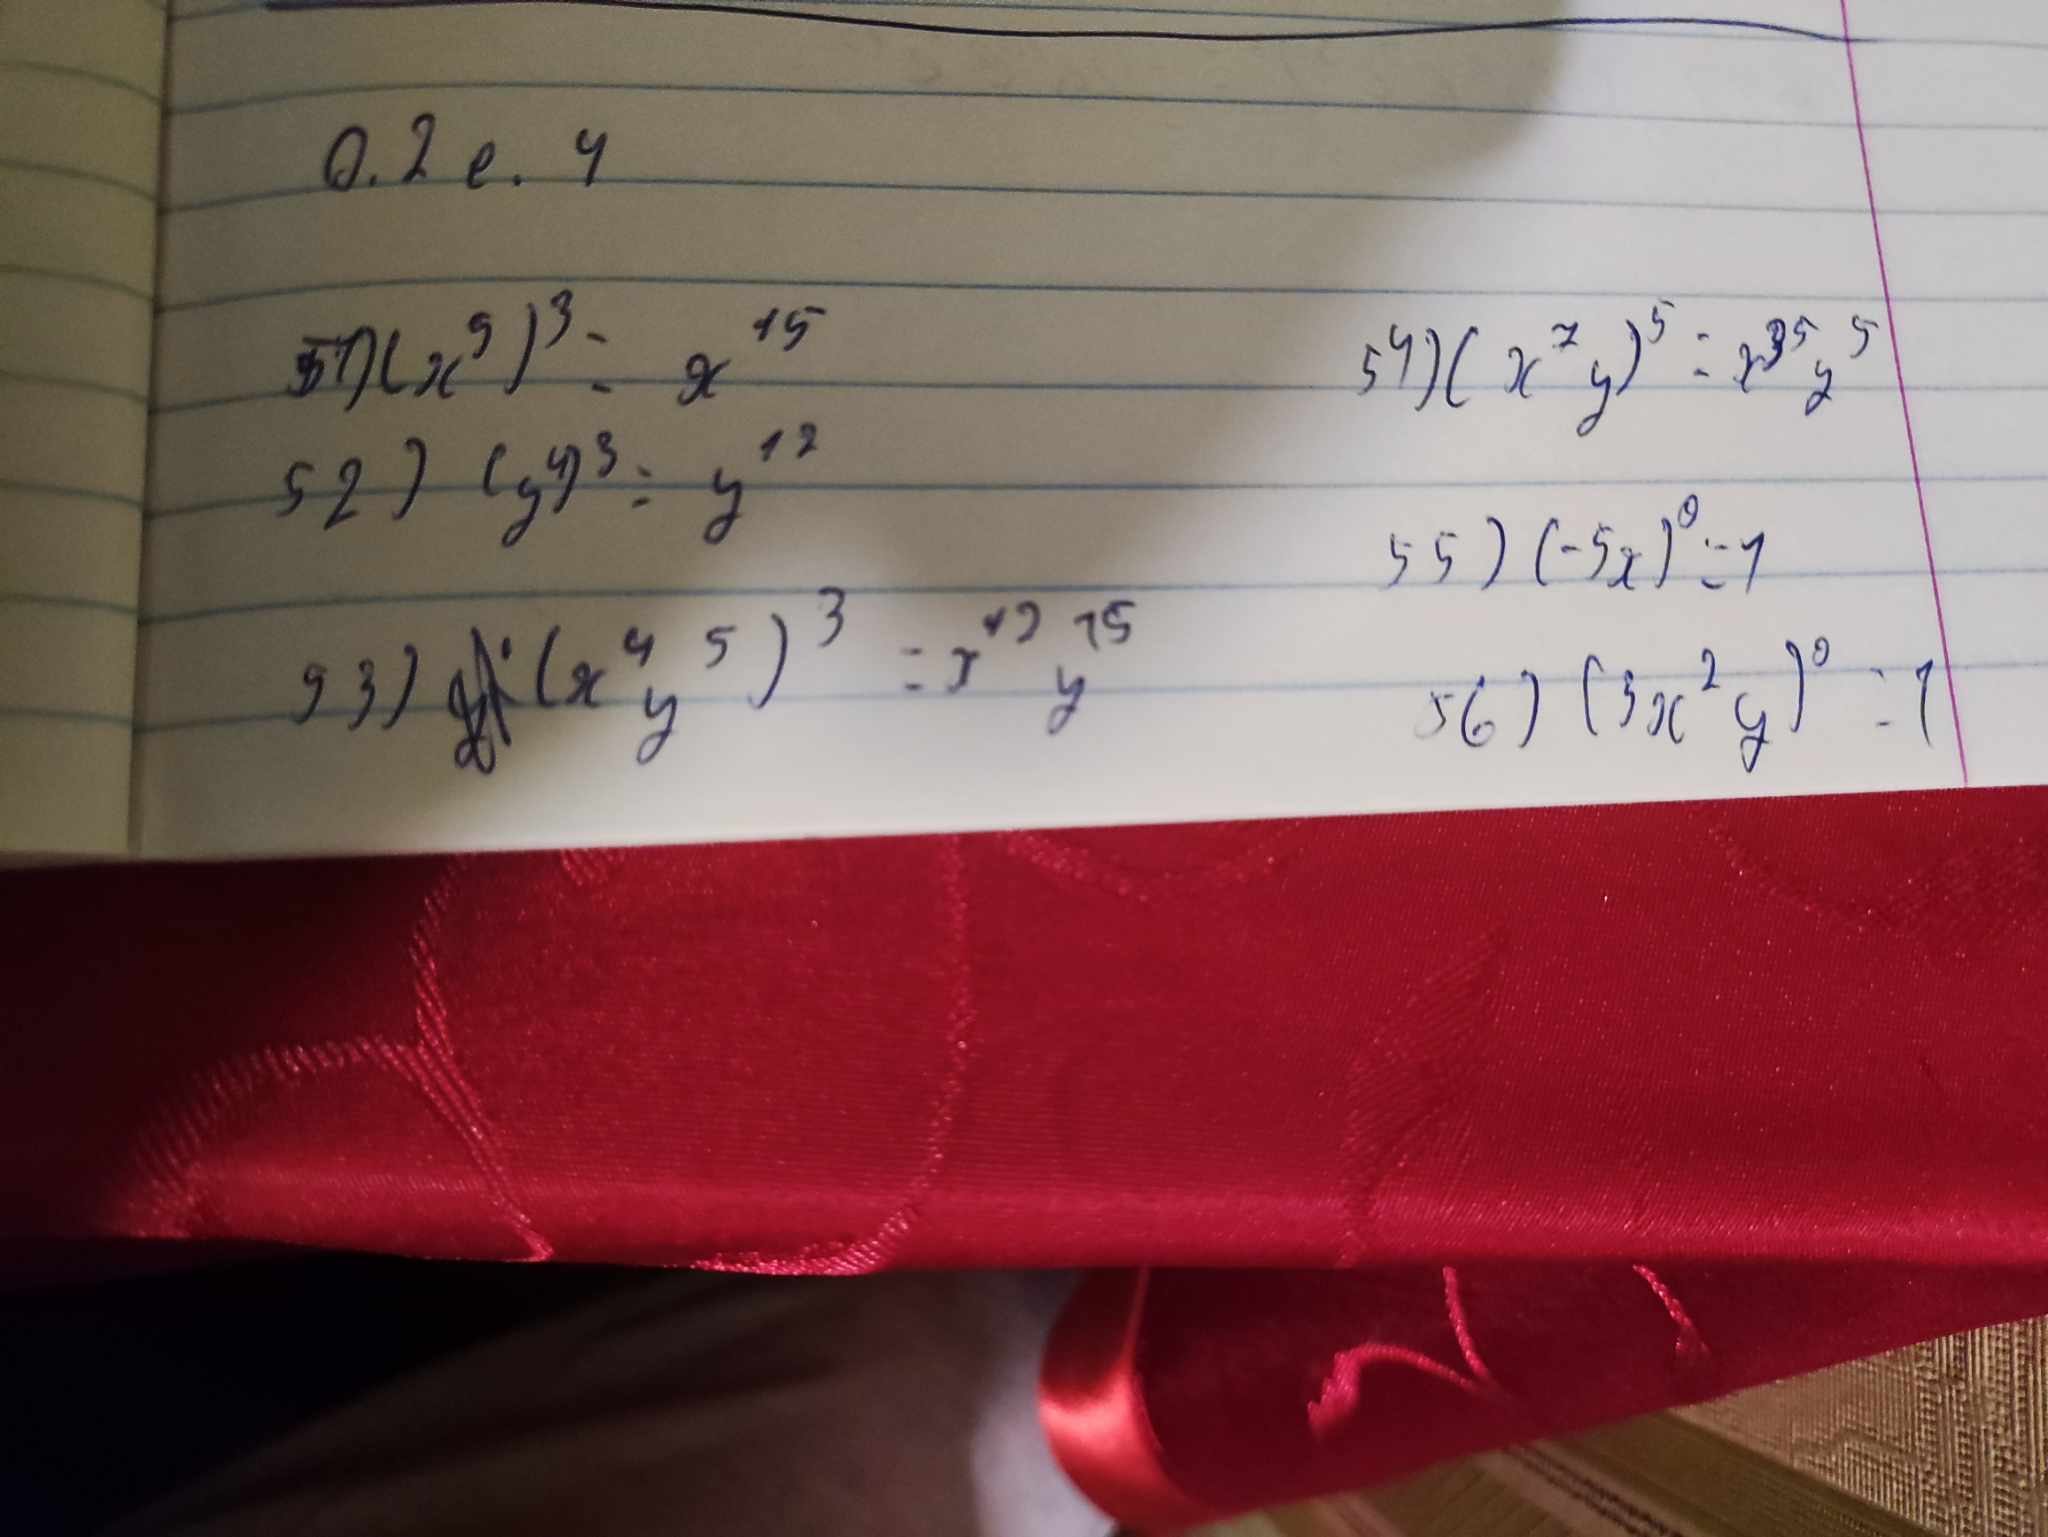 0.2 e. 4
51) (x⁵)³ = x¹⁵
52) (y⁴)³ = y¹²
53) (x⁴y⁵)³ = x¹²y¹⁵
54) (x⁷y)⁵ = x³⁵y⁵
55) (-5x)⁰ = 1
56) (3x²y)⁰ = 1